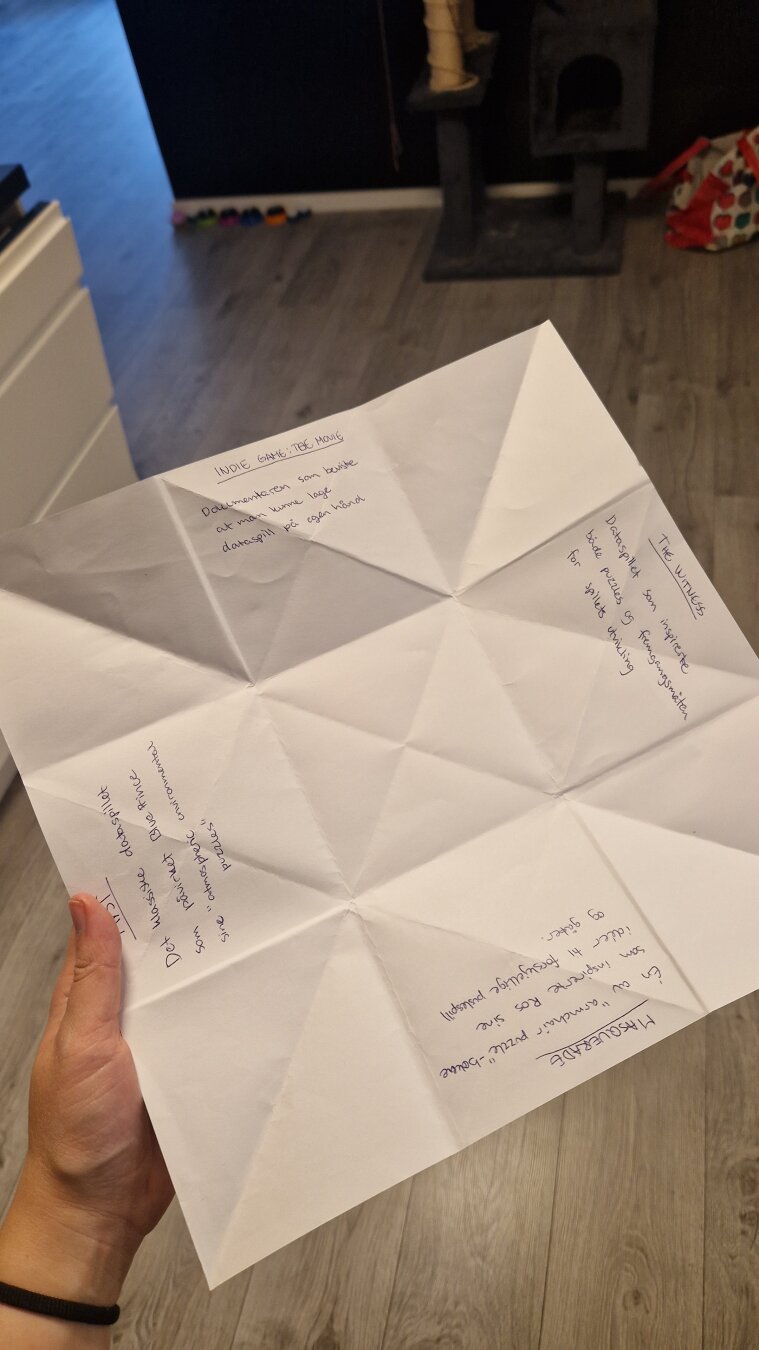 INDIE GAME: THE MOVIE
Dokumentaren som beviste
at man kunne lage
dataspill på egen hånd
THE WITNESS
Dataspillet som inspirerte
både puzzles og fremgangsmåten
for spillets utvikling
MASQUERADE
Én av "armchair puzzle"-bøkene
som inspirerte Ros sine
idéer til forskjellige puslespill
og gåter.
MYST
Det klassiske dataspillet
som påvirket Blue Prince
sine "atmospheric environmental
puzzles"